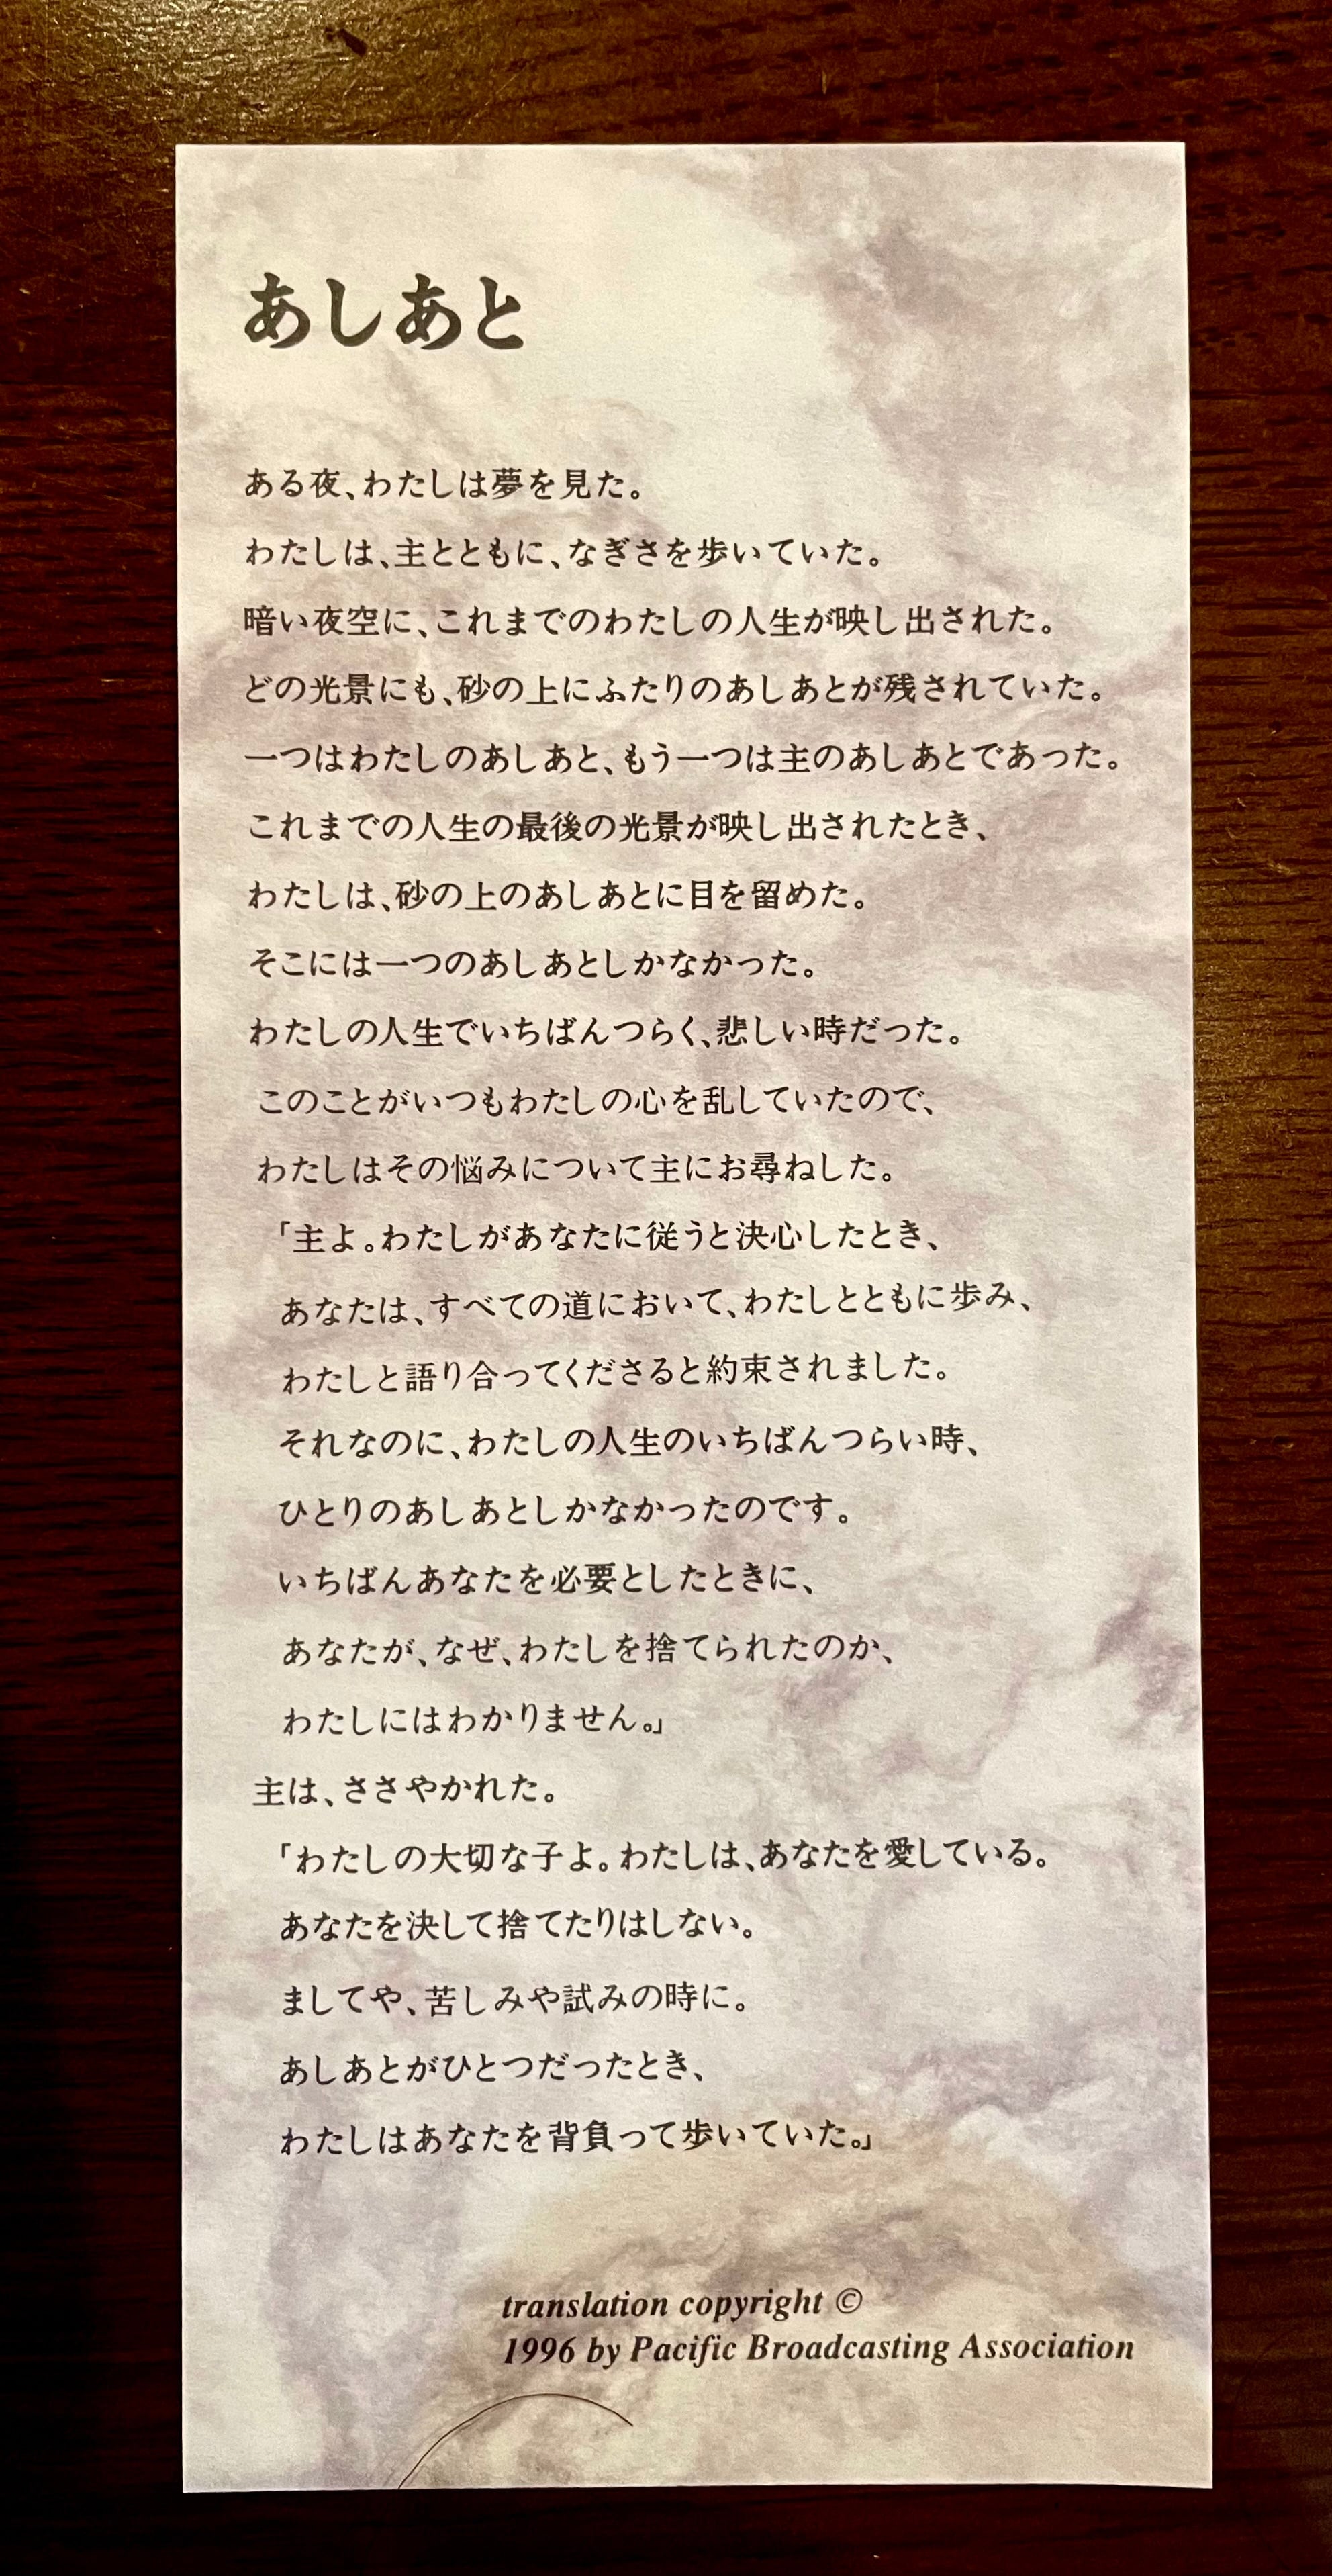 あしあと
ある夜、わたしは夢を見た。
わたしは、主とともに、なぎさを歩いていた。
暗い夜空に、これまでのわたしの人生が映し出された。
どの光景にも、砂の上にふたりのあしあとが残されていた。
一つはわたしのあしあと、もう一つは主のあしあとであった。
これまでの人生の最後の光景が映し出されたとき、
わたしは、砂の上のあしあとに目を留めた。
そこには一つのあしあとしかなかった。
わたしの人生でいちばんつらく、悲しい時だった。
このことがいつもわたしの心を乱していたので、
わたしはその悩みについて主にお尋ねした。
「主よ。わたしがあなたに従うと決心したとき、
あなたは、すべての道において、わたしとともに歩み、
わたしと語り合ってくださると約束されました。
それなのに、わたしの人生のいちばんつらい時、
ひとりのあしあとしかなかったのです。
いちばんあなたを必要としたときに、
あなたが、なぜ、わたしを捨てられたのか、
わたしにはわかりません。」
主は、ささやかれた。
「わたしの大切な子よ。わたしは、あなたを愛している。
あなたを決して捨てたりはしない。
ましてや、苦しみや試みの時に。
あしあとがひとつだったとき、
わたしはあなたを背負って歩いていた。」
translation copyright ©
1996 by Pacific Broadcasting Association